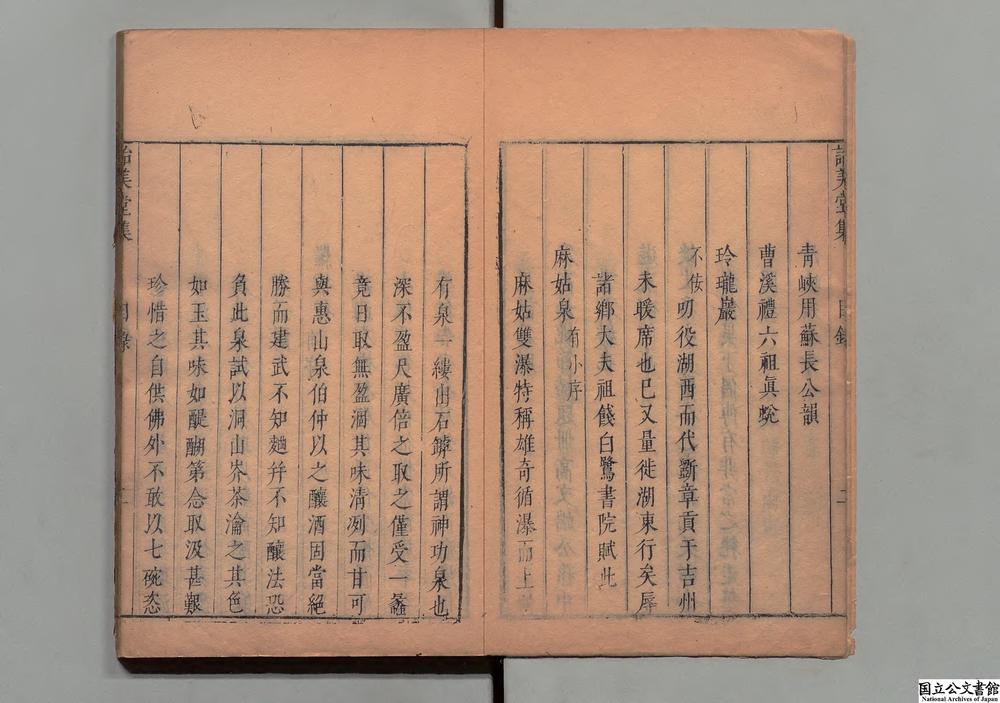 詒美堂集 目錄 二
青峽用蘇長公韻
曹溪禮六祖眞蛻
玲瓏巖
不佞叨役湖西而代斵章貢于吉州
未暖席也已又量徙湖東行矣辱
諸鄉大夫祖餞白鷺書院賦此
麻姑泉 有小序
麻姑雙瀑特稱雄奇循瀑而上
有泉一縷出石罅所謂神功泉也
深不盈尺廣倍之取之僅受一蠡
竟日取無盈涸其味清冽而甘可
與惠山泉伯仲以之釀酒固當絕
勝而建武不知麯并不知釀法恐
負此泉試以洞山岕茶瀹之其色
如玉其味如醍醐第念取汲甚艱
珍惜之自供佛外不敢以七碗恣
詒美堂集 目錄 二
国立公文書館
National Archives of Japan